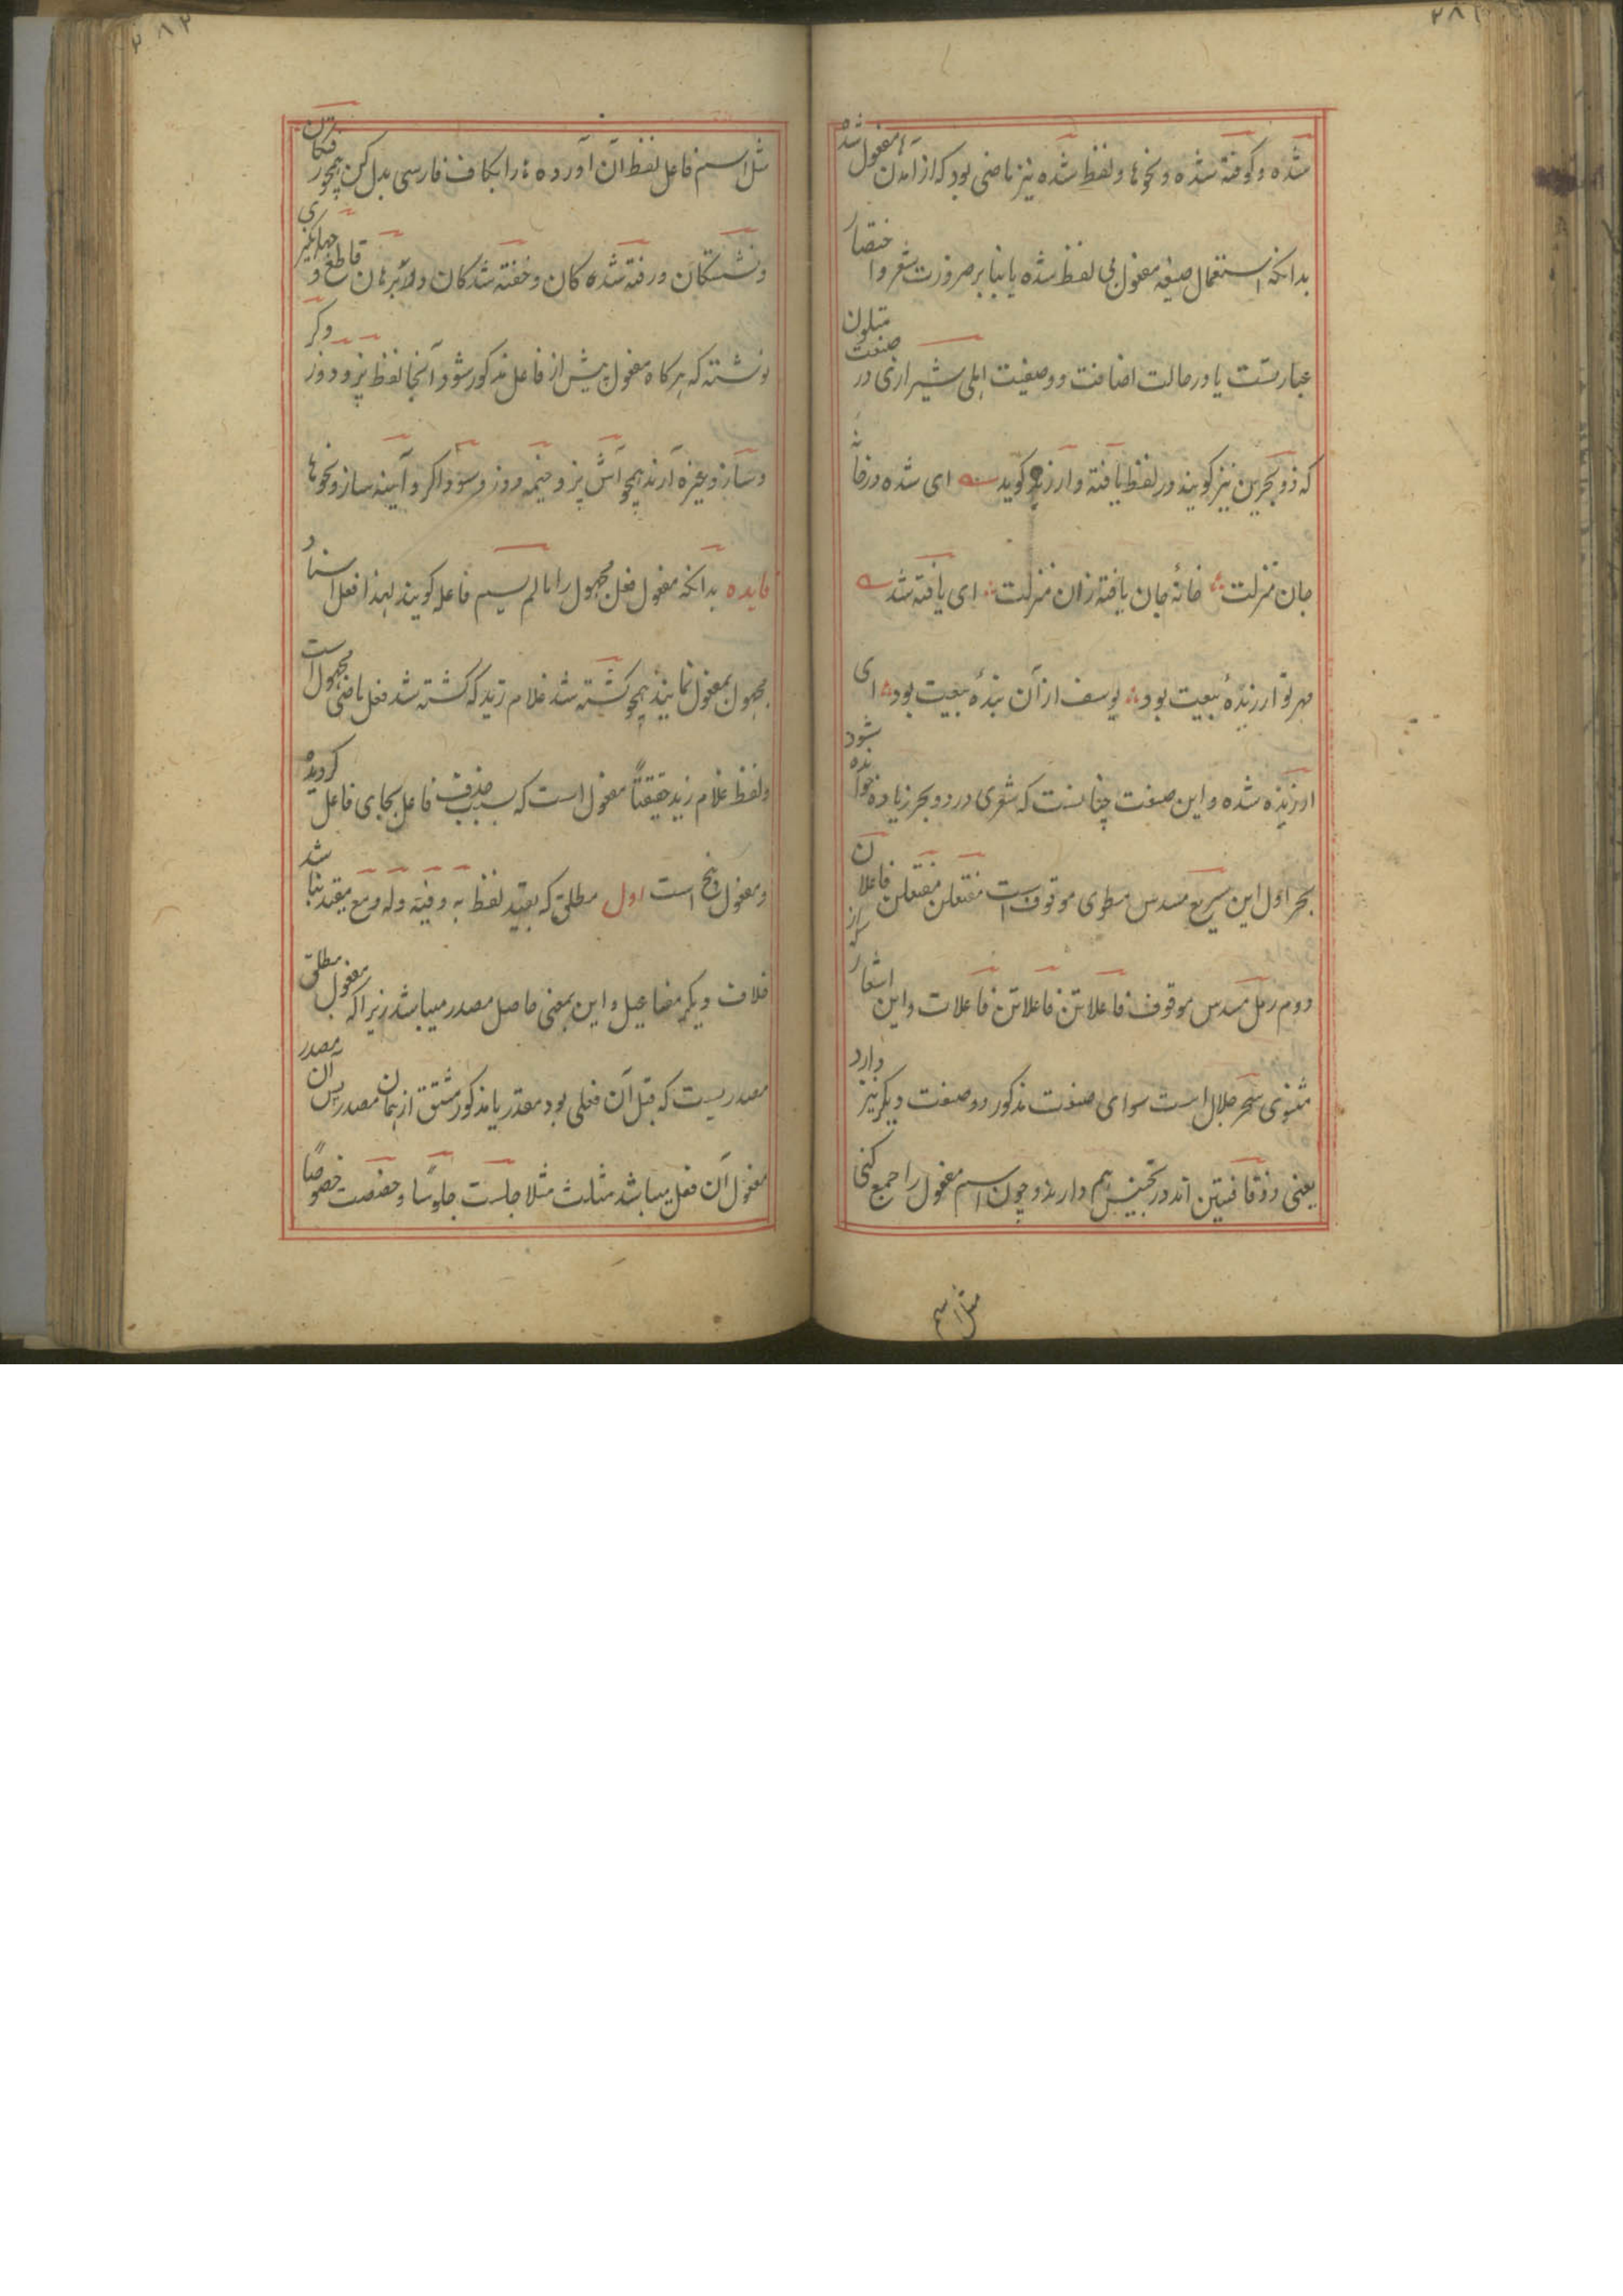 ۲۸۱
شده و کوفته شده و نحوها و لفظ شده نیز ماضی بود که از آمدن ها مفعول شده
بدانکه استعمال صیغه مفعول بی لفظ شده یا بنا بر ضرورت شعر و اختصار
عبارتست یا در حالت اضافت و وصفیت اهلی شیرازی در صنعت متلون
که ذو بحرین نیز کویند در لفظ یافته و ارزنده کوید ای شده در خانه
جان منزلت خانهٔ جان یافته زان منزلت ای یافته شد
مهر تو ارزندهٔ بیعت بود یوسف از آن بندهٔ بیعت بود ای
ارزنده شده و این صنعت چنانست که شعری در دو بحر زیاده خوانده شود
بحر اول این سریع مسدس مطوی موقوف است مفتعلن مفتعلن فاعلان
دوم رمل مسدس موقوف فاعلاتن فاعلاتن فاعلات و این اشعار که از
مثنوی سحر حلال است سوای صنعت مذکور دو صنعت دیکر نیز دارد
یعنی ذو قافیتین اند و تجنیس هم دارند و چون اسم مفعول را جمع کنی
مثل اسم
۲۸۲
مثل اسم فاعل لفظ آن آورده ها را بکاف فارسی بدل کن همچو
و نشستکان و رفته شده کان و خفته شدکان و در برهان قاطع و جهانگیری
نوشته که هرکاه مفعول پیش از فاعل مذکور شود آنجا لفظ پز و دوز و کر
و ساز و غیره آرند همچو آش پز و خیمه دوز و سوداکر و آیینه ساز و نحوها
فایده بدانکه مفعول فعل مجهول را ما لم یسم فاعله کویند لهذا فعل اسناد
مجهول بمفعول نمایند همچو کشته شد غلام زید که کشته شد فعل ماضی مجهول است
و لفظ غلام زید حقیقتاً مفعول است که بسبب حذف فاعل بجای فاعل کردیده
و مفعول پنج است اول مطلق که بقید لفظ به و فیه و له و مع مقید نباشد
خلاف دیکر مفاعیل و این بمعنی حاصل مصدر میباشد زیرا که مفعول مطلق
مصدریست که قبل آن فعلی بود مقدر یا مذکور مشتق از همان مصدر پس آن مصدر
مفعول آن فعل میباشد مثلث مثلا جلست جلوسا و خصصت خصوصاً